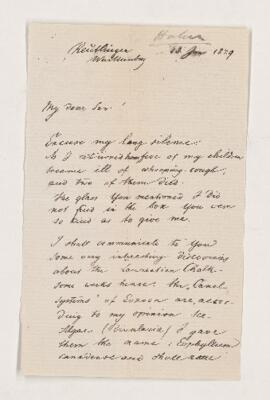 Hahn
Reutlingen 18 Jan 1879
Württemberg
My dear Sir!
Excuse my long silence:
As I returned home five of my children
became ill of whooping cough,
and two of them died.
The glass you mentioned I did
not find in the box you were
so kind as to give me.
I shall communicate to you
some very interesting discoveries
about the Laurentian Chalk
some weeks hence. The "Canal
Systems" of Eozoon are, accor-
ding to my opinion See-
Algae (      ) I gave
them the name: Eophyllum
canadense and shall